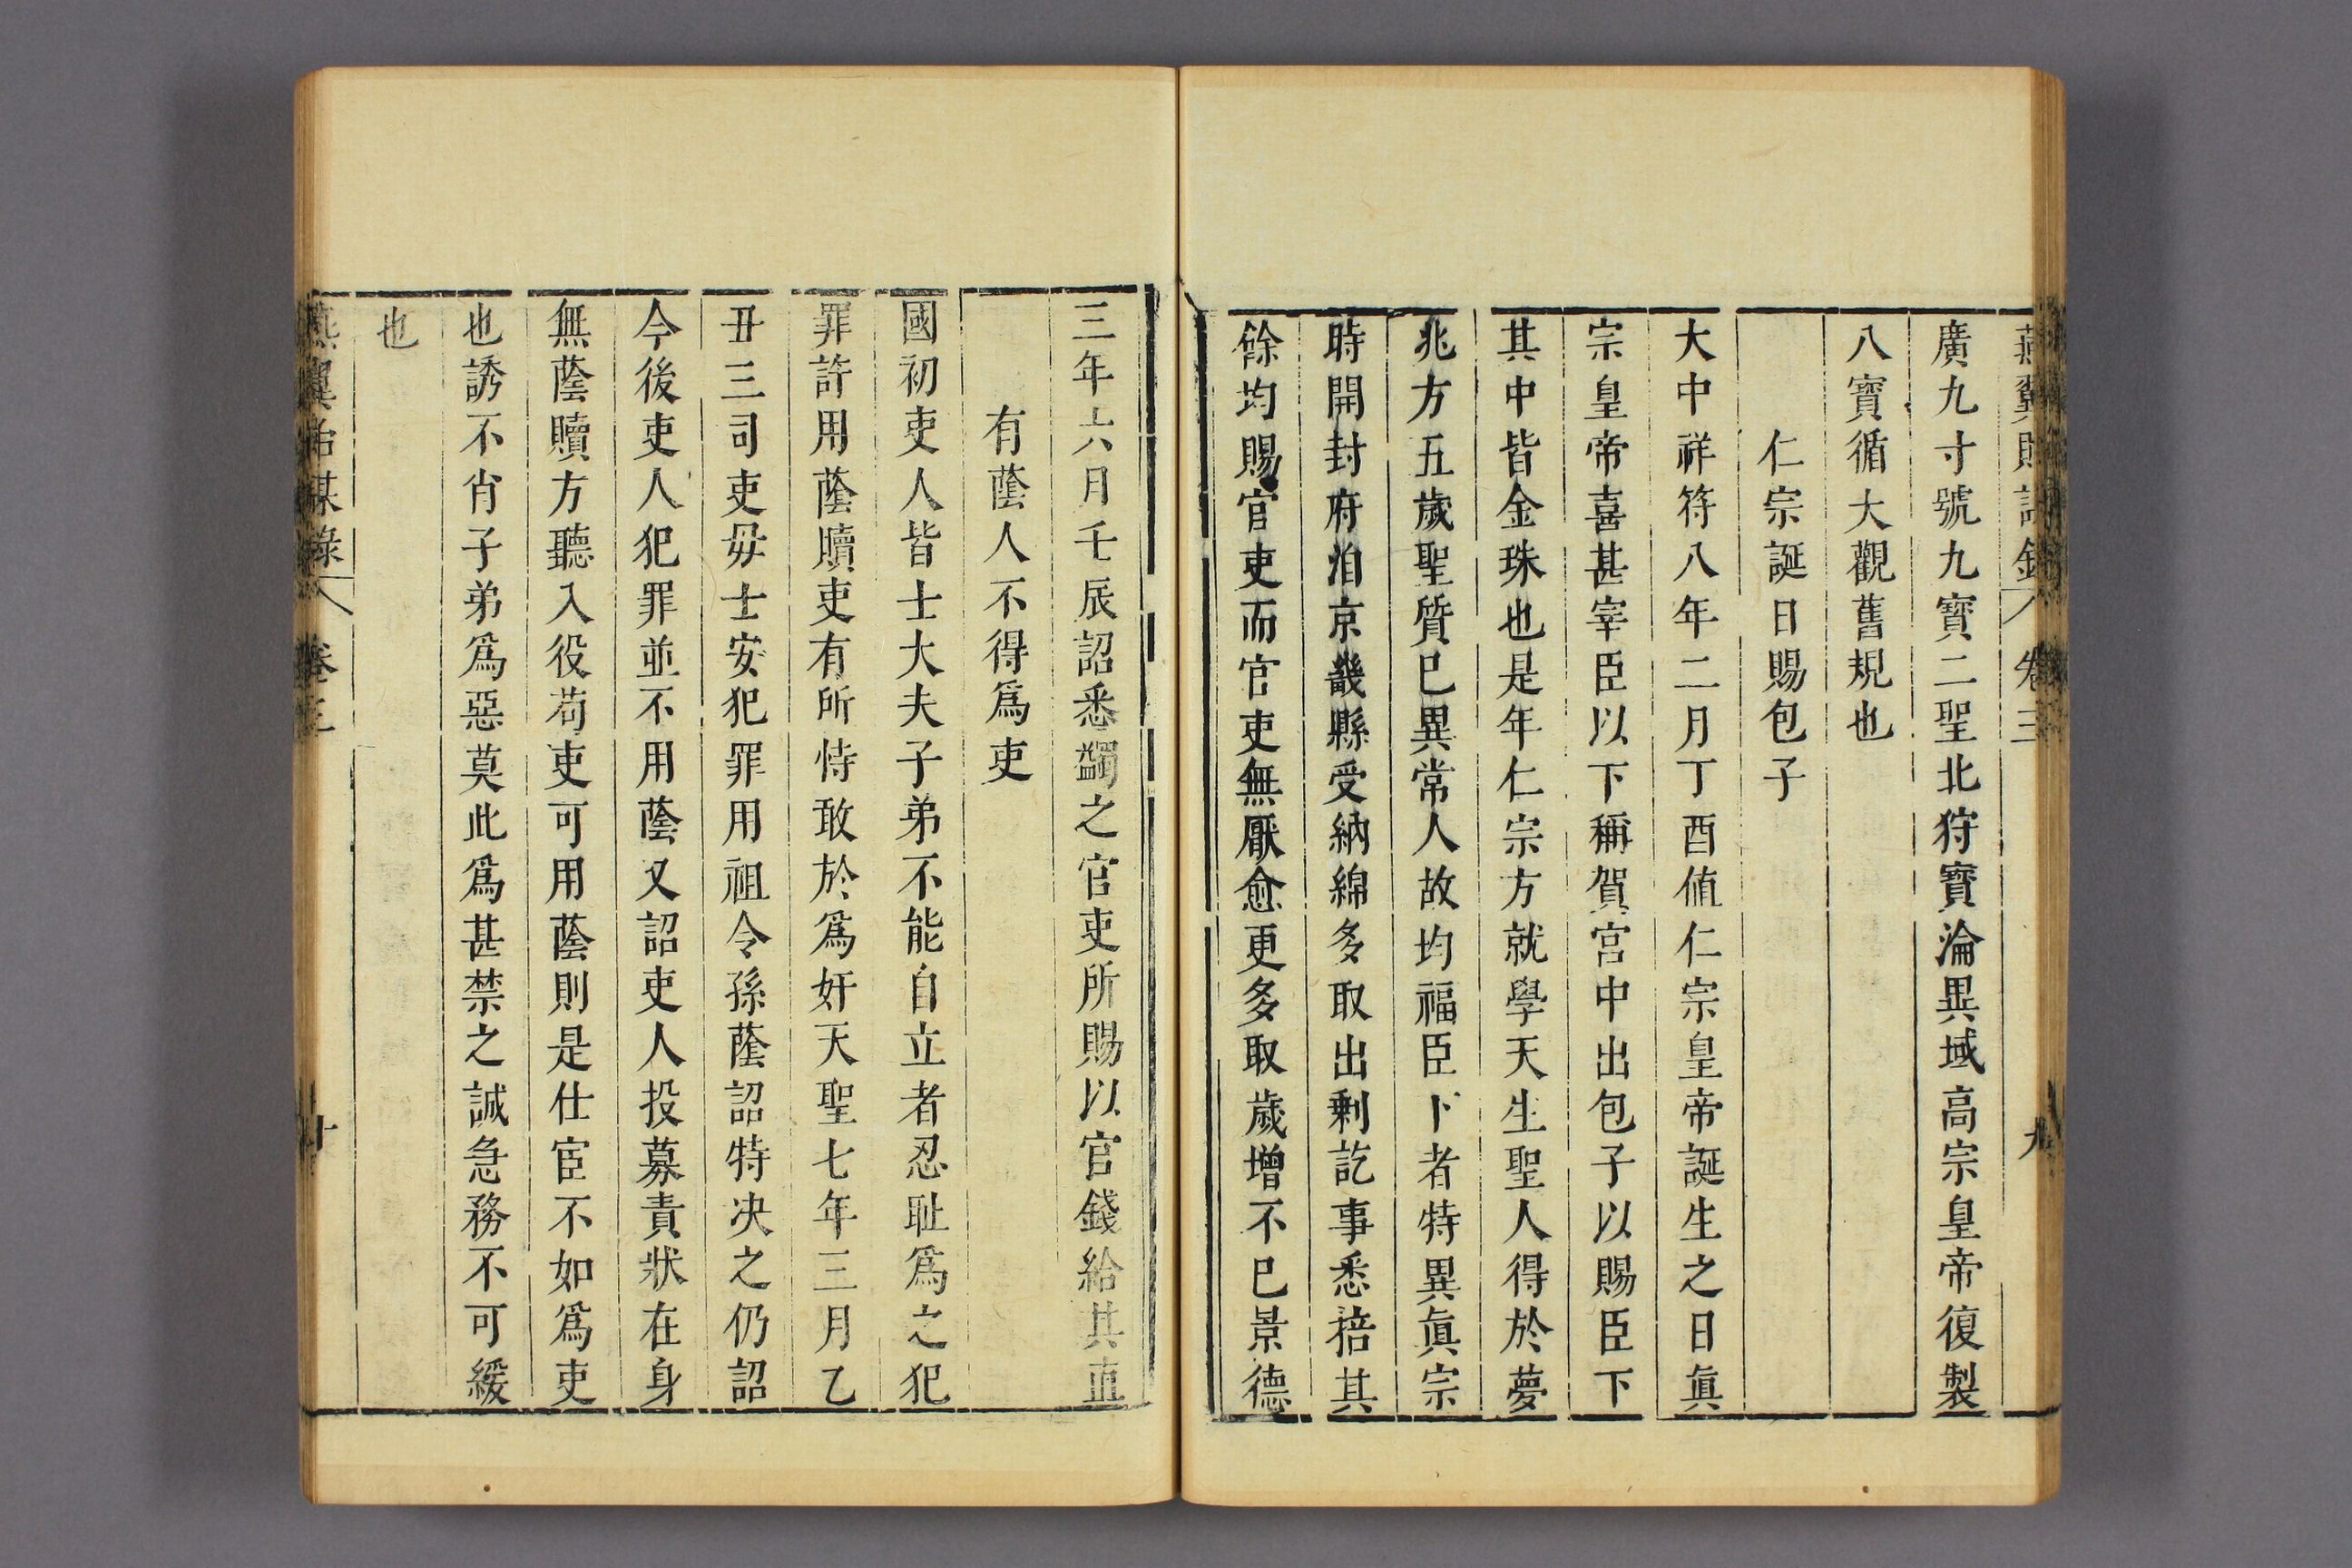 廣九寸號九寶二聖北狩寶淪異域高宗皇帝復製
八寶循大觀舊規也
仁宗誕日賜包子
大中祥符八年二月丁酉値仁宗皇帝誕生之日眞
宗皇帝喜甚宰臣以下稱賀宮中出包子以賜臣下
其中皆金珠也是年仁宗方就學天生聖人得於夢
兆方五歲聖質巳異常人故均福臣卜者特異眞宗
時開封府洎京畿縣受納綿多取出剩訖事悉掊其
餘均賜官吏而官吏無厭愈更多取歲增不巳景德
三年六月壬辰詔悉蠲之官吏所賜以官錢給其直
有蔭人不得爲吏
國初吏人皆士大夫子弟不能自立者忍耻爲之犯
罪許用蔭贖吏有所恃敢於爲奸天聖七年三月乙
丑三司吏毋士安犯罪用祖令孫蔭詔特决之仍詔
今後吏人犯罪並不用蔭又詔吏人投募責狀在身
無蔭贖方聽入役苟吏可用蔭則是仕宦不如爲吏
也誘不肖子弟爲惡莫此爲甚禁之誠急務不可緩
也
燕翼詒謀錄 卷三 十